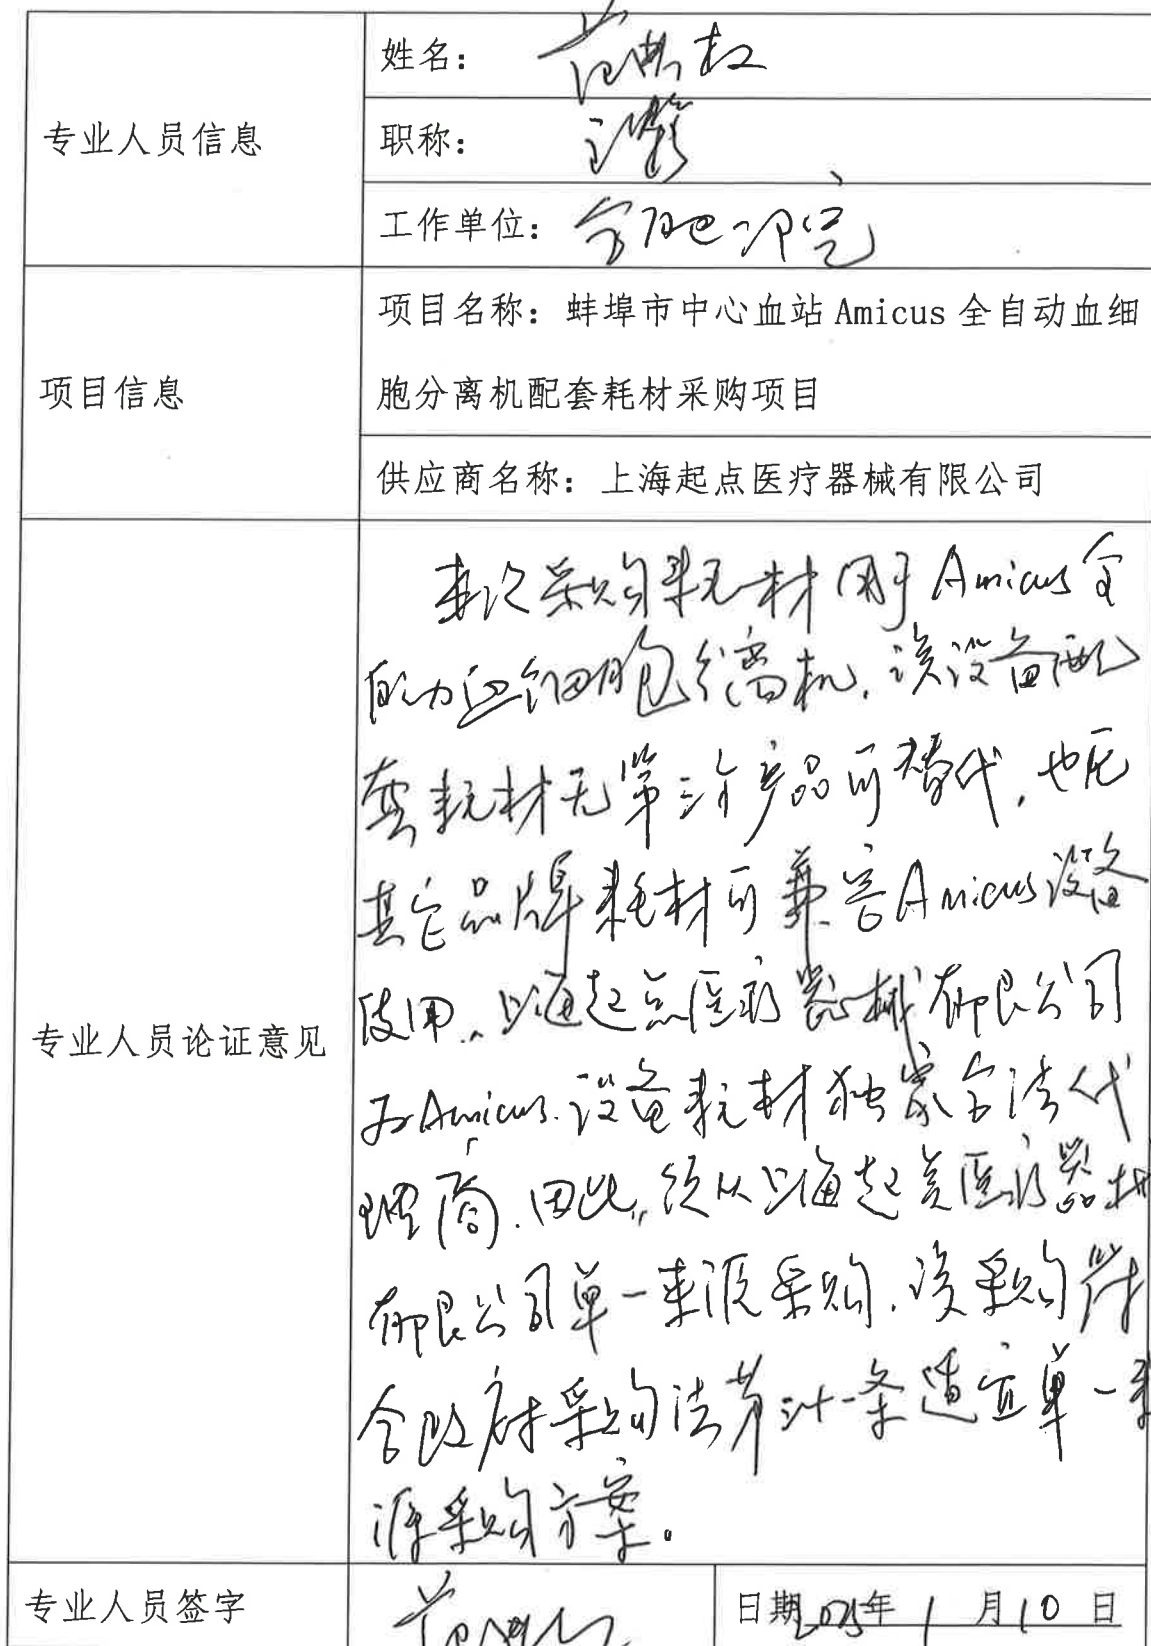 专业人员信息
姓名：范典权
职称：主任
工作单位：合肥二院
项目信息
项目名称：蚌埠市中心血站 Amicus 全自动血细
胞分离机配套耗材采购项目
供应商名称：上海起点医疗器械有限公司
专业人员论证意见
本次采购耗材用于Amicus全
自动血细胞分离机，该设备配
套耗材无第三方产品可替代，也无
其它品牌耗材可兼容Amicus设备
使用。上海起点医疗器械有限公司
为Amicus设备耗材独家合法代
理商。因此，须从上海起点医疗器械
有限公司单一来源采购，该采购符
合政府采购法第卅一条适宜单一来
源采购方案。
专业人员签字
日期2025年1月10日